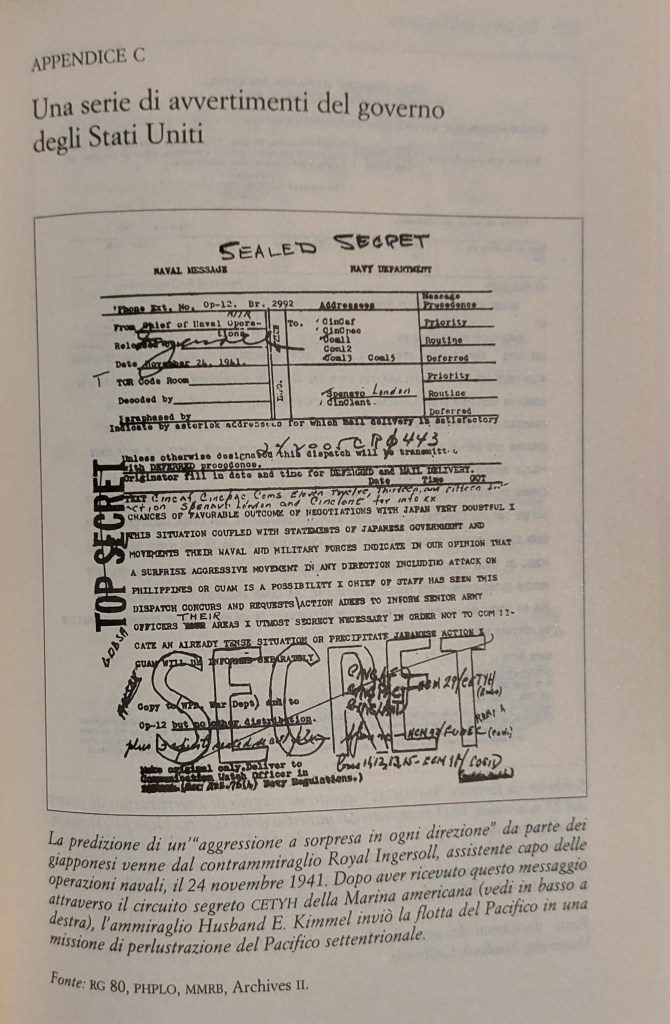 APPENDICE C
Una serie di avvertimenti del governo
degli Stati Uniti
SEALED SECRET
NAVAL MESSAGE NAVY DEPARTMENT
Phone Ext. No. Op-12. Br. 2992 Addressees Message Precedence
From Chief of Naval Operations To. CinCaf Priority
CinCpac
Released by Com11 Routine
Com12
Date November 24, 1941. Com13 Com15 Deferred
TOR Code Room Priority
Decoded by Spenavo London Routine
CinClant.
Paraphased by Deferred
Indicate by asterisk addressees for which mail delivery is satisfactory
242005 CRØ443
Unless otherwise designated this dispatch will be transmitted
with DEFERRED precedence.
Originator fill in date and time for DEFERRED and MAIL DELIVERY.
Date Time GCT
TEXT Cincaf, Cincpac, Coms Eleven Twelve, Thirteen, and Fifteen for
action Spenavo London and Cinclant for info XX
CHANCES OF FAVORABLE OUTCOME OF NEGOTIATIONS WITH JAPAN VERY DOUBTFUL X
THIS SITUATION COUPLED WITH STATEMENTS OF JAPANESE GOVERNMENT AND
MOVEMENTS THEIR NAVAL AND MILITARY FORCES INDICATE IN OUR OPINION THAT
A SURPRISE AGGRESSIVE MOVEMENT IN ANY DIRECTION INCLUDING ATTACK ON
PHILIPPINES OR GUAM IS A POSSIBILITY X CHIEF OF STAFF HAS SEEN THIS
DISPATCH CONCURS AND REQUESTS ACTION ADEES TO INFORM SENIOR ARMY
OFFICERS THEIR AREAS X UTMOST SECRECY NECESSARY IN ORDER NOT TO COMPLI-
CATE AN ALREADY TENSE SITUATION OR PRECIPITATE JAPANESE ACTION X
GUAM WILL BE INFORMED SEPARATELY
TOP SECRET
SECRET
Copy to (WPD, War Dept) and to
Op-12 but no other distribution.
Make original only. Deliver to
Communication Watch Officer in
Navy Regulations.)
La predizione di un'"aggressione a sorpresa in ogni direzione" da parte dei
giapponesi venne dal contrammiraglio Royal Ingersoll, assistente capo delle
operazioni navali, il 24 novembre 1941. Dopo aver ricevuto questo messaggio
attraverso il circuito segreto CETYH della Marina americana (vedi in basso a
destra), l'ammiraglio Husband E. Kimmel inviò la flotta del Pacifico in una
missione di perlustrazione del Pacifico settentrionale.
Fonte: RG 80, PHPLO, MMRB, Archives II.